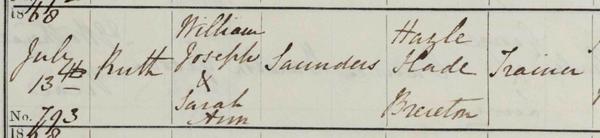 1868
July
13th
No. 793
Ruth
William
Joseph
&
Sarah
Ann
Saunders
Hazle
Slade
Brereton
Trainer
1868